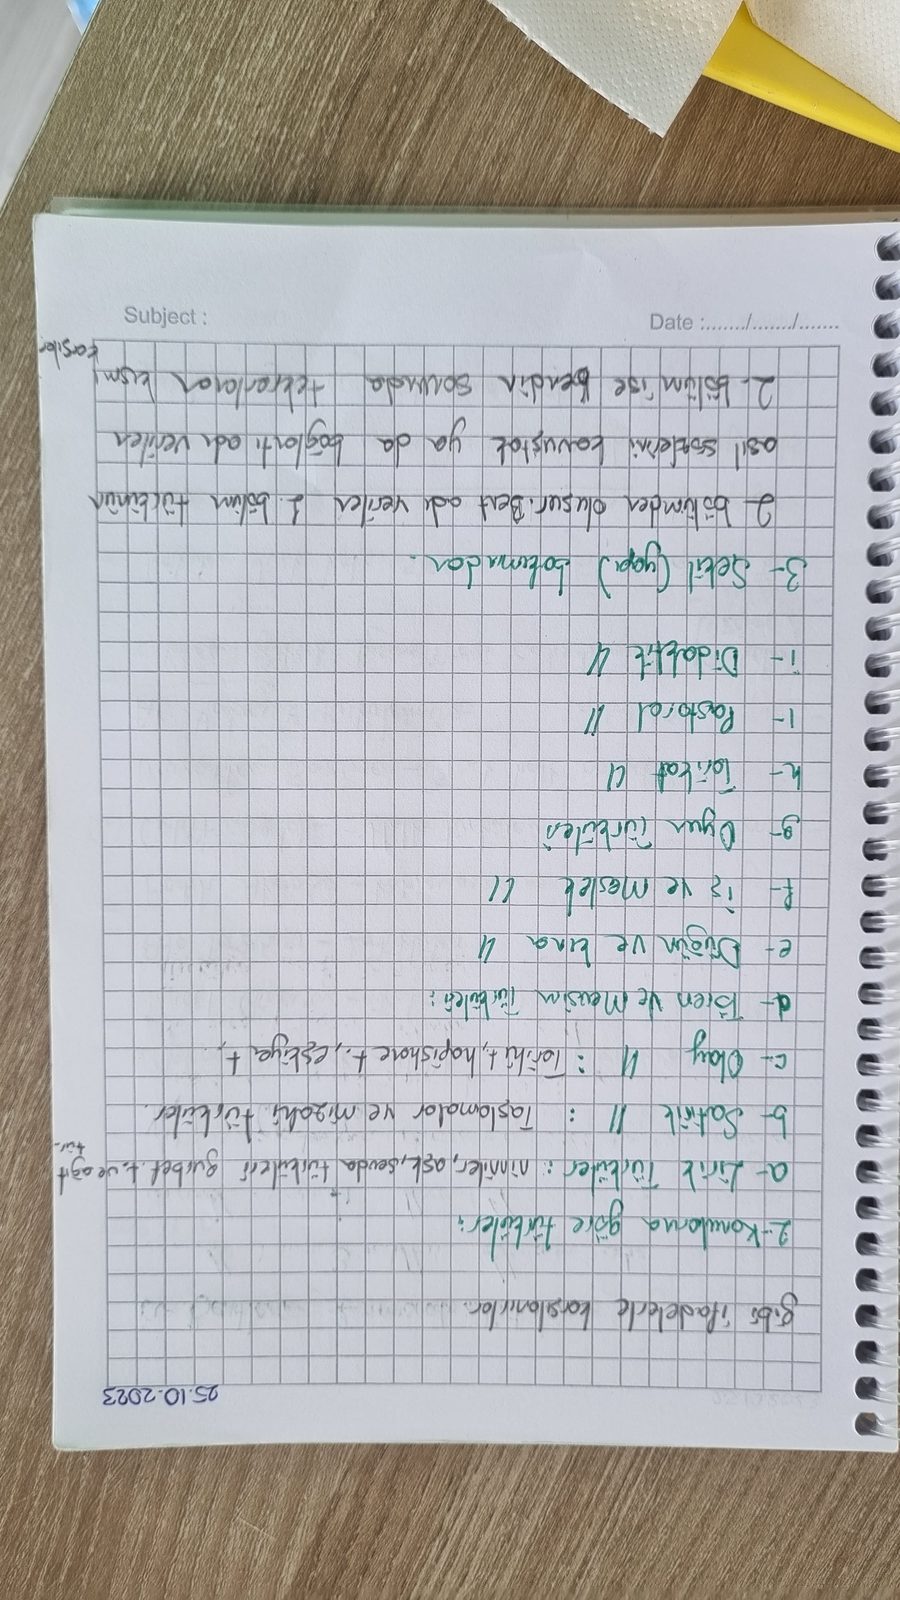 25.10.2023
gibi ifadelerle karşılanırlar.
2- Konularına göre türküler:
a- Lirik Türküler: ninniler, aşk, sevda türküleri gurbet t. ve ağıt tür.
b- Satirik 11 : Taşlamalar ve mizahi türküler.
c- Olay 11 : Tarihi t, hapishane t., eşkiya t,
d- Tören ve Mevsim Türküleri:
e- Düğün ve kına 11
f- iş ve meslek 11
g- Oyun Türküleri
h- Tarikat 11
ı- Pastoral 11
i- Didaktik 11
3- Şekil (yapı) bakımından.
2 bölümden oluşur. Bent adı verilen 1. bölüm türkünün
asıl sözlerini kavuştak ya da bağlantı adı verilen
2. bölüm ise bendin sonunda tekrarlanan kısmı karşılar
Subject :
Date :......./......./.......